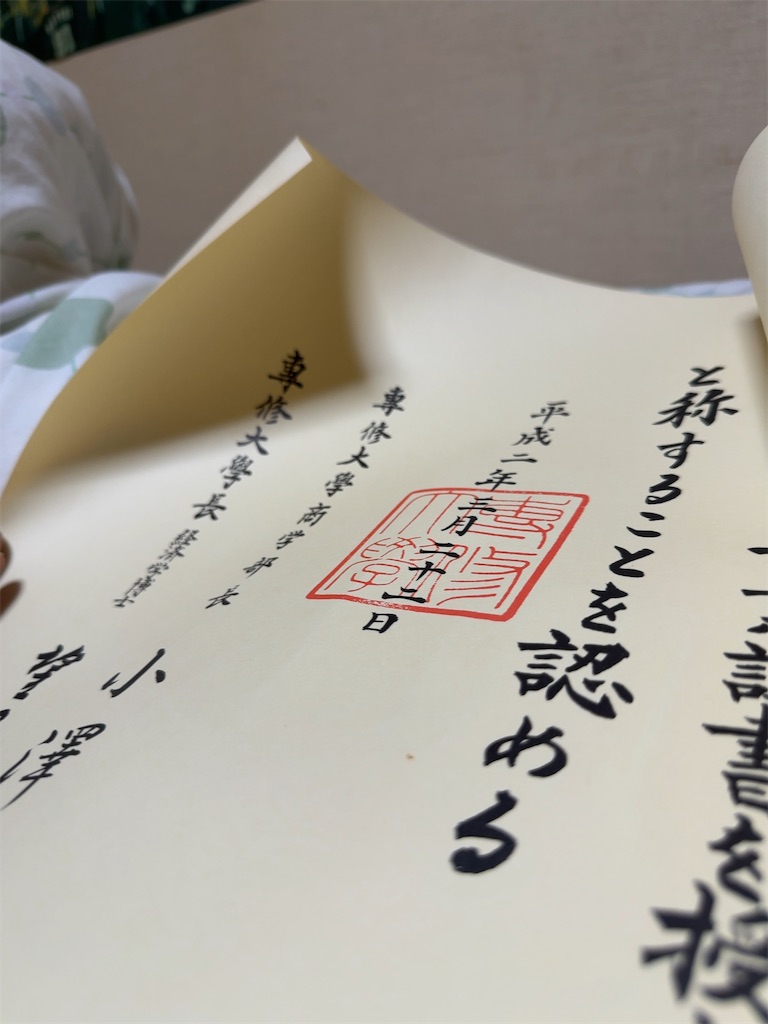 書を授
と称することを認める
平成二年三月二十二日
專修大學商学部長
小澤
專修大學長 経済学博士
望